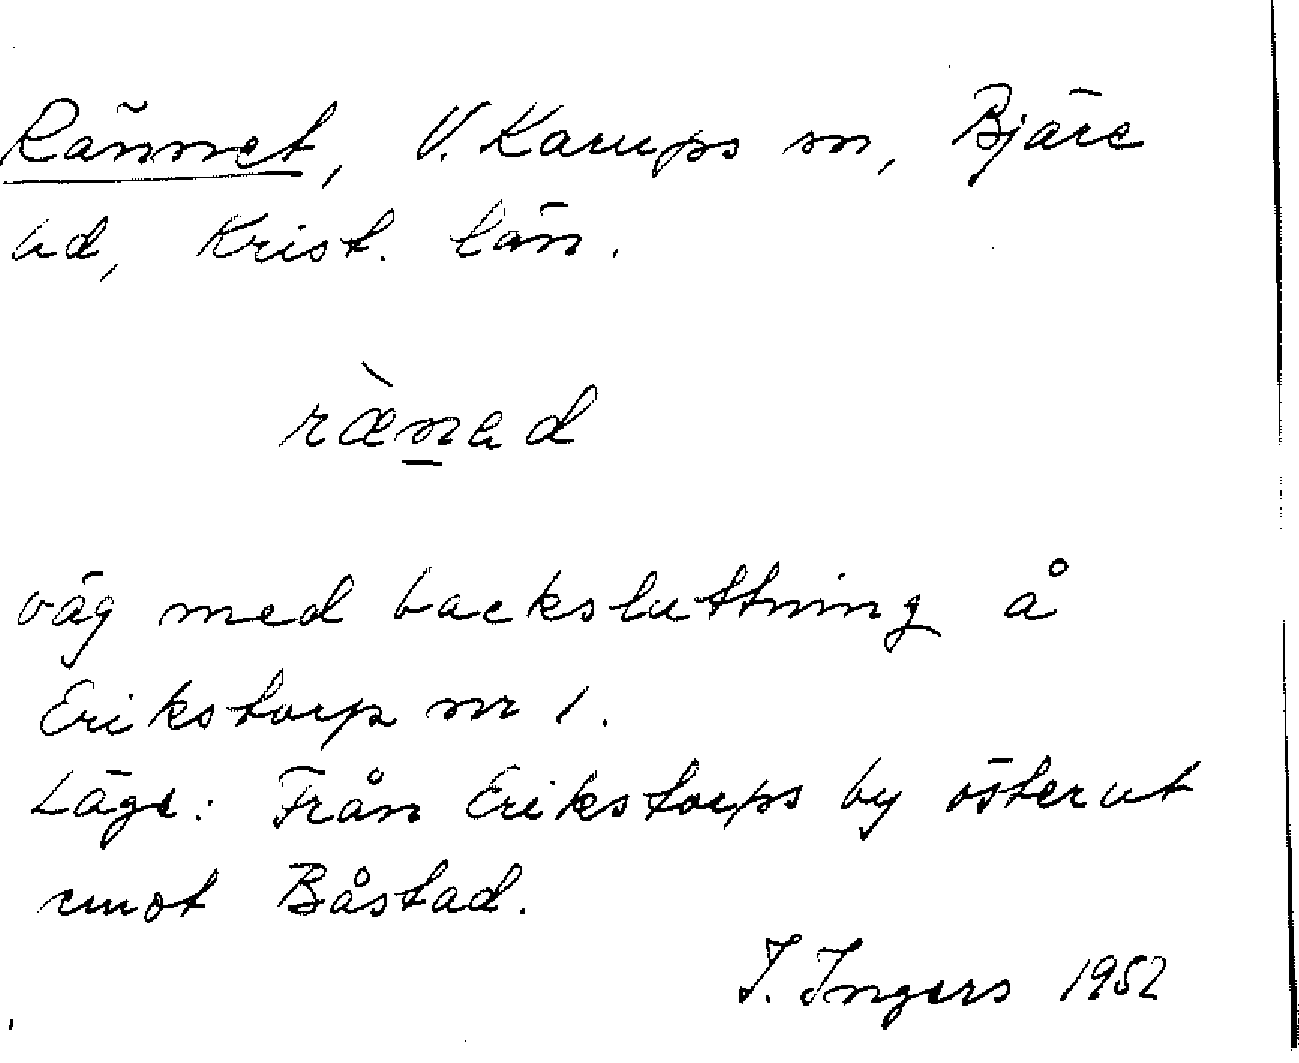 Rännet, V. Karups sn, Bjäre
hd, Krist. län.
ræ̀n̲ad
väg med backsluttning å
Erikstorp nr 1.
Läge: Från Erikstorps by österut
emot Båstad.
I. Ingers 1952